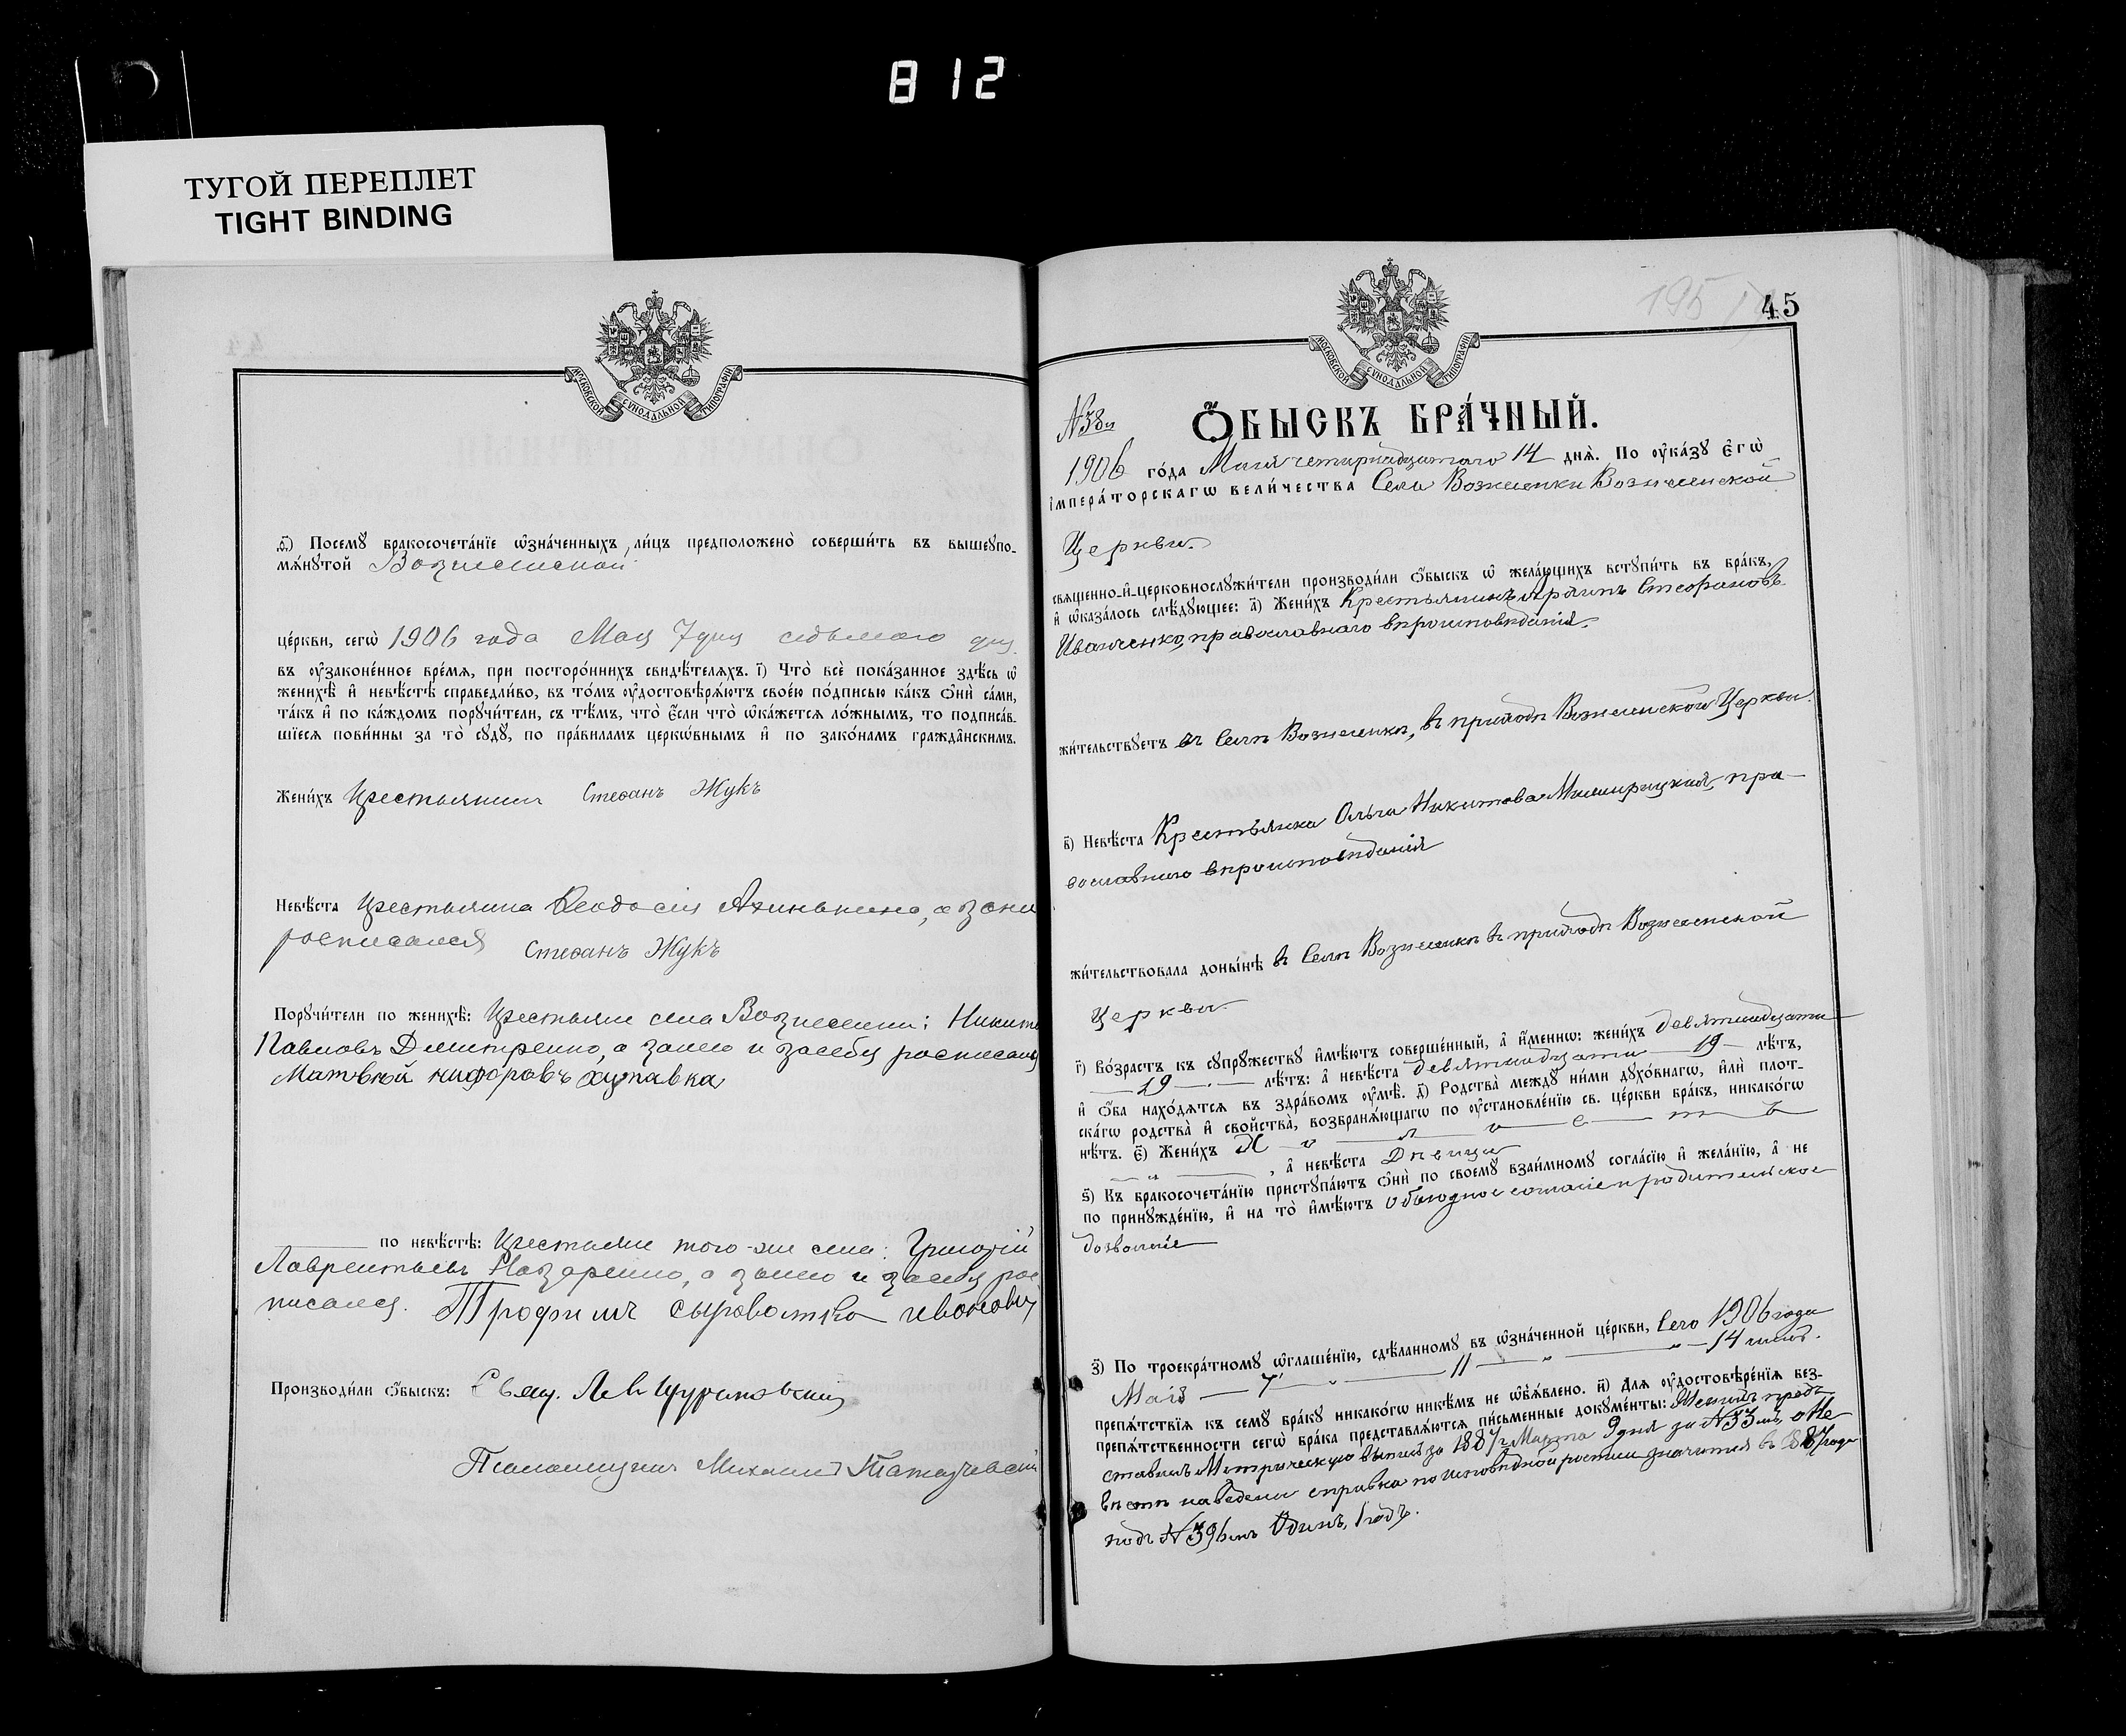 812
ТУГОЙ ПЕРЕПЛЕТ
TIGHT BINDING
МОСКОВСКОЙ СѴНОДАЛЬНОЙ ТИПОГРАФІИ
Посемꙋ бракосочета́нїе ѡ҆зна́ченныхъ ли́цъ предположено̀ соверши́ть въ вышеꙋпо-
мѧ́нꙋтой Вознесенской
це́ркви, сегѡ̀ 1906 года Мая 7 дня седьмого дня
въ ᲂу҆законе́нное вре́мѧ, при посторо́ннихъ свидѣ́телѧхъ. і҃) Что̀ всѐ пока́занное здѣ́сь ѡ҆
женихѣ̀ и҆ невѣ́стѣ справедли́во, въ то́мъ ᲂу҆достовѣрѧ́ютъ свое́ю по́дписью ка́къ ѻ҆нѝ са́ми,
та́къ и҆ по ка́ждомъ порꙋчи́тели, съ тѣ́мъ, что̀ є҆́сли что̀ ѡ҆ка́жетсѧ ло́жнымъ, то подписа́в-
шїесѧ пови́нны за то̀ сꙋдꙋ̀, по пра́виламъ церкѡ́внымъ и҆ по зако́намъ гражда̑нскимъ.
Жени́хъ Крестьянин Стефанъ Жукъ
Невѣ́ста Крестьянка Феодосия а за нее
росписался Стефанъ Жукъ
Порꙋчи́тели по женихѣ̀: Крестьяне села Вознесенки: Никита
Павловъ Дмитренко, а за него и за себя росписался
Матвѣй
по невѣ́стѣ: Крестьяне того-же села: Григорій
Лаврентьевъ Назаренко, а за него и за себя рос-
писался. Трофимъ Сыроватка
Производи́ли ѻ҆́быскъ: Свящ. Лев
Псаломщикъ Михаилъ
45
МОСКОВСКОЙ СѴНОДАЛЬНОЙ ТИПОГРАФІИ
№38й
Ѻ҆́БЫСКЪ БРА́ЧНЫЙ.
1906 го́да Мая четырнадцатого 14 днѧ̀. По ᲂу҆ка́зꙋ є҆гѡ̀
і҆мпера́торскагѡ вели́чества Села Вознесенки Вознесенской
Церкви.
свѧще́нно-и҆-церковнослꙋжи́тели производи́ли ѻ҆́быскъ ѡ҆ жела́ющихъ встꙋпи́ть въ бра́къ,
и҆ ѡ҆каза́лось слѣ́дꙋющее: а҃) Жени́хъ Крестьянинъ Стефановъ
Иванченко, православнаго вѣроисповѣданія.
жи́тельствꙋетъ въ Селѣ Вознесенкѣ, въ приходѣ Вознесенской Церкви.
в҃) Невѣ́ста Крестьянка Ольга Никитова пра-
вославнаго вѣроисповѣданія
жи́тельствовала доны́нѣ въ Селѣ Вознесенкѣ въ приходѣ Вознесенской
Церкви
г҃) Во́зрастъ къ сꙋпрꙋ́жествꙋ и҆мѣ́ютъ соверше́нный, а҆ и҆́меннѡ: жени́хъ девятнадцати
19 лѣ́тъ: а҆ невѣ́ста девятнадцати 19 лѣ́тъ,
и҆ ѻ҆́ба нахо́дѧтсѧ въ здра́вомъ ᲂу҆мѣ̀. д҃) Родства̀ междꙋ̀ ни́ми дꙋхо́внагѡ, и҆лѝ плот-
ска́гѡ родства̀ и҆ сво́йства̀, возбранѧ́ющагѡ по ᲂу҆становле́нїю св. це́ркви бра́къ, никако́гѡ
нѣ́тъ. є҃) Жени́хъ Холостъ
, а҆ невѣ́ста Дѣвица
ѕ҃) Къ бракосочета́нїю пристꙋпа́ютъ ѻ҆нѝ по своемꙋ̀ взаи́мномꙋ согла́сїю и҆ жела́нїю, а҆ не
по принꙋжде́нїю, и҆ на то̀ и҆мѣ́ютъ обоюдное согласіе и родительское
дозволеніе
з҃) По троекра́тномꙋ ѡ҆глаше́нїю, сдѣ́ланномꙋ въ ѡ҆зна́ченной це́ркви, Сего 1906 года
Мая 7, 11 14 числ.
препѧ́тствїѧ къ семꙋ̀ бра́кꙋ никако́гѡ никѣ́мъ не ѡ҆б̾ѧ́влено. и҃) Длѧ ᲂу҆достовѣре́нїѧ без-
препѧ́тственности сегѡ̀ бра́ка представлѧ́ютсѧ пи́сьменные докꙋме́нты: Женихъ пред-
ставилъ Метрическую выпись за 1887 г. Марта 9 дня за №33мъ, о Не
вѣстѣ наведена справка по исповѣдной росписи значится въ 1887 года
подъ №396мъ Одинъ, 1 годъ.